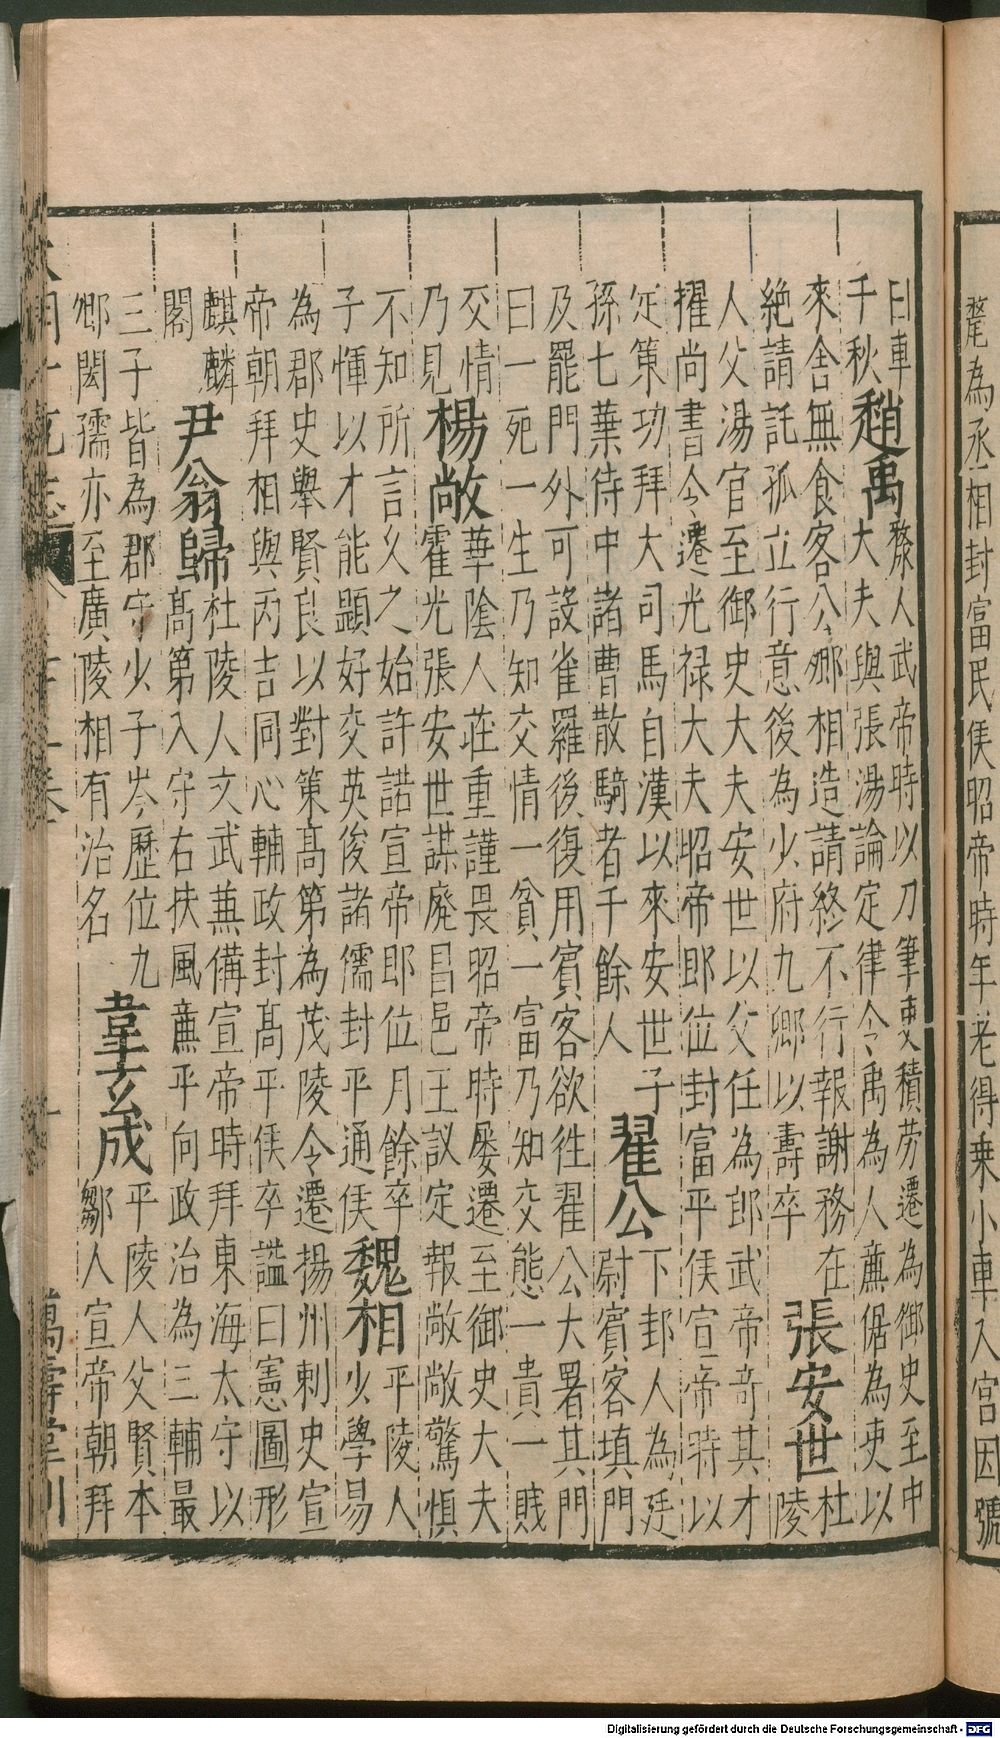 為丞相封富民侯昭帝時年老得乗小車入宫因號
曰車
千秋
趙禹
斄人武帝時以刀筆吏積劳遷為御史至中
大夫與張湯論定律令禹為人廉倨為吏以
來舍無食客公卿相造請終不行報謝務在
絶請託孤立行意後為少府九卿以壽卒
張安世
杜
陵
人父湯官至御史大夫安世以父任為郎武帝奇其才
擢尚書令遷光禄大夫昭帝即位封富平侯宣帝時以
定策功拜大司馬自漢以來安世子
孫七葉侍中諸曹散騎者千餘人
翟公
下邽人為廷
尉賓客填門
及罷門外可設雀羅後復用賓客欲徃翟公大署其門
曰一死一生乃知交情一貧一富乃知交態一貴一賎
交情
乃見
楊敞
華陰人莊重謹畏昭帝時屡遷至御史大夫
霍光張安世謀廢昌邑王議定報敞敞驚惧
不知所言久之始許諾宣帝即位月餘卒
子惲以才能顯好交英俊諸儒封平通侯
魏相
平陵人
少學易
為郡史舉賢良以對策高第為茂陵令遷揚州刺史宣
帝朝拜相與丙吉同心輔政封髙平侯卒諡曰憲圖形
麒麟
閣
尹翁歸
杜陵人文武兼備宣帝時拜東海太守以
髙第入守右扶風廉平向政治為三輔最
三子皆為郡守少子岑歷位九
卿閎孺亦至廣陵相有治名
韋玄成
平陵人父賢本
鄒人宣帝朝拜
大明一統志
萬壽堂刊
Digitalisierung gefördert durch die Deutsche Forschungsgemeinschaft - DFG